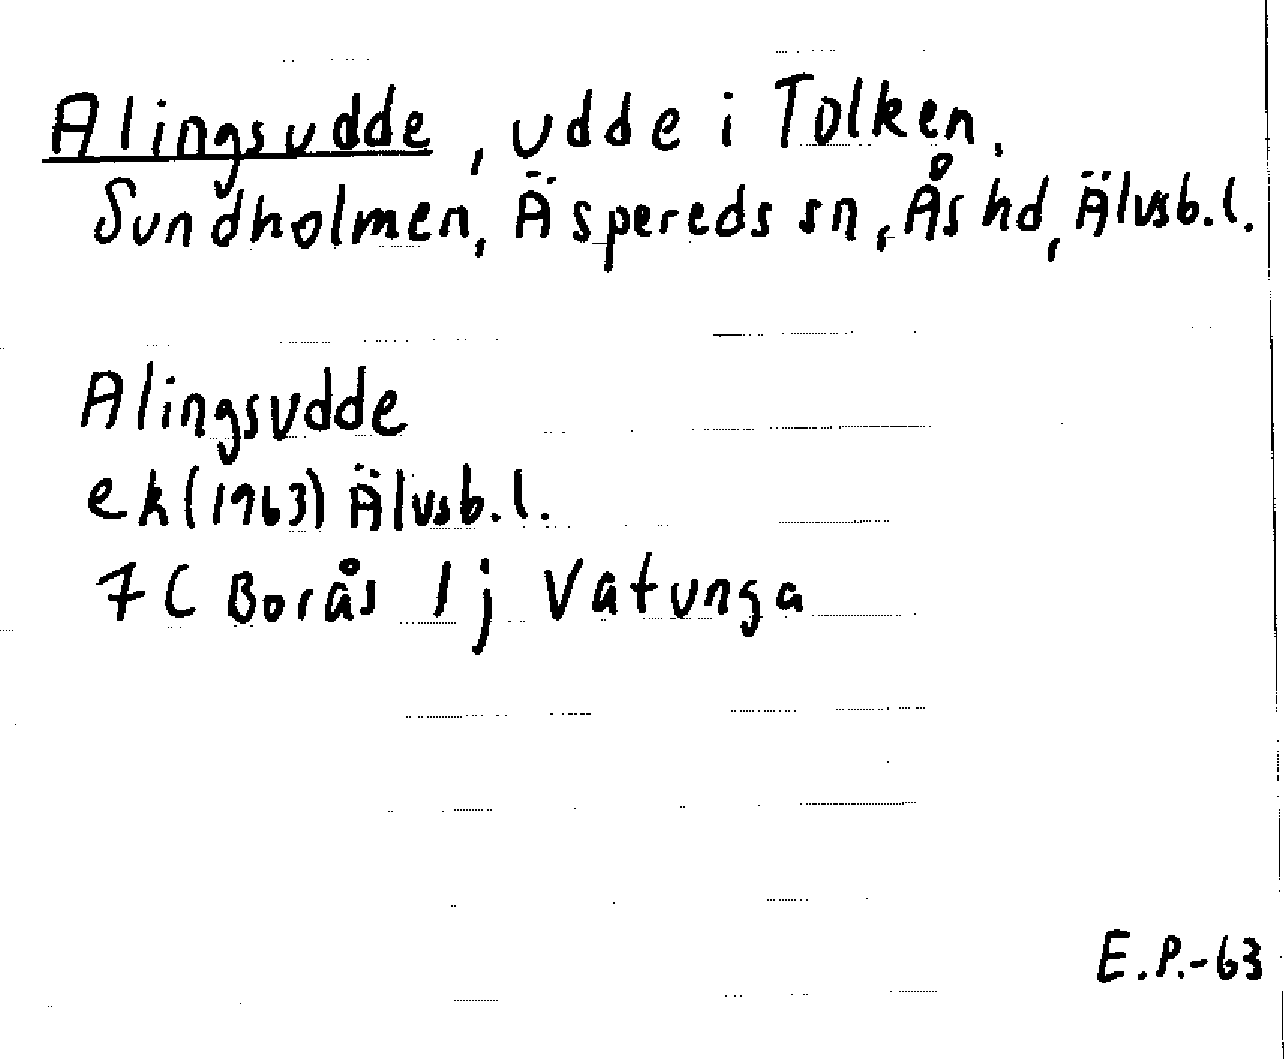 Alingsudde, udde i Tolken.
Sundholmen, Äspereds sn, Ås hd, Älvsb.l.
Alingsudde
ek(1963) Älvsb.l.
7C Borås 1j Vatunga
E.P.-63